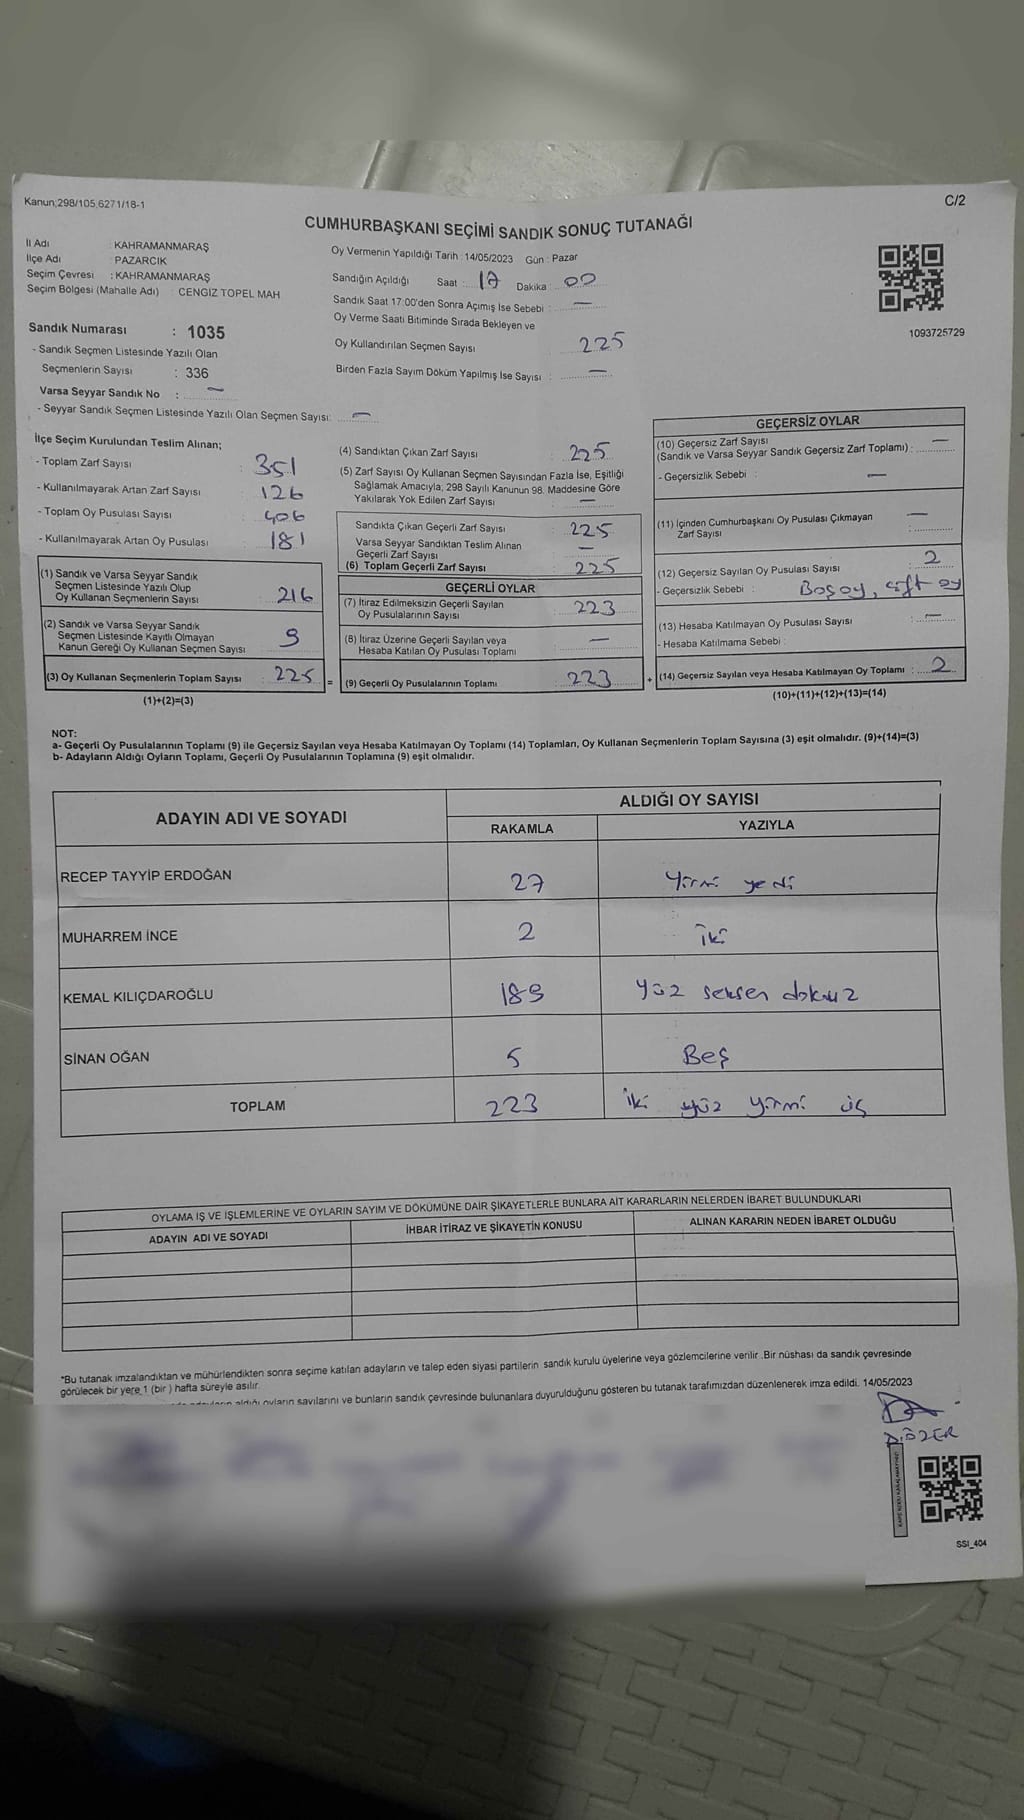 Kanun;298/105,6271/18-1
C/2
CUMHURBAŞKANI SEÇİMİ SANDIK SONUÇ TUTANAĞI
İl Adı KAHRAMANMARAŞ
İlçe Adı : PAZARCIK
Seçim Çevresi : KAHRAMANMARAŞ
Seçim Bölgesi (Mahalle Adı) : CENGİZ TOPEL MAH
Sandık Numarası : 1035
- Sandık Seçmen Listesinde Yazılı Olan
Seçmenlerin Sayısı : 336
Varsa Seyyar Sandık No : —
- Seyyar Sandık Seçmen Listesinde Yazılı Olan Seçmen Sayısı: —
Oy Vermenin Yapıldığı Tarih : 14/05/2023 Gün : Pazar
Sandığın Açıldığı Saat : 17 Dakika : 00
Sandık Saat 17:00'den Sonra Açımış İse Sebebi : —
Oy Verme Saati Bitiminde Sırada Bekleyen ve
Oy Kullandırılan Seçmen Sayısı 225
Birden Fazla Sayım Döküm Yapılmış İse Sayısı : —
1093725729
İlçe Seçim Kurulundan Teslim Alınan;
- Toplam Zarf Sayısı : 351
- Kullanılmayarak Artan Zarf Sayısı : 126
- Toplam Oy Pusulası Sayısı : 406
- Kullanılmayarak Artan Oy Pusulası : 181
(1) Sandık ve Varsa Seyyar Sandık
Seçmen Listesinde Yazılı Olup
Oy Kullanan Seçmenlerin Sayısı : 216
(2) Sandık ve Varsa Seyyar Sandık
Seçmen Listesinde Kayıtlı Olmayan
Kanun Gereği Oy Kullanan Seçmen Sayısı : 9
(3) Oy Kullanan Seçmenlerin Toplam Sayısı : 225 =
(1)+(2)=(3)
(4) Sandıktan Çıkan Zarf Sayısı : 225
(5) Zarf Sayısı Oy Kullanan Seçmen Sayısından Fazla İse, Eşitliği
Sağlamak Amacıyla; 298 Sayılı Kanunun 98. Maddesine Göre
Yakılarak Yok Edilen Zarf Sayısı : —
Sandıkta Çıkan Geçerli Zarf Sayısı : 225
Varsa Seyyar Sandıktan Teslim Alınan
Geçerli Zarf Sayısı : —
(6) Toplam Geçerli Zarf Sayısı : 225
GEÇERLİ OYLAR
(7) İtiraz Edilmeksizin Geçerli Sayılan
Oy Pusulalarının Sayısı : 223
(8) İtiraz Üzerine Geçerli Sayılan veya
Hesaba Katılan Oy Pusulası Toplamı : —
(9) Geçerli Oy Pusulalarının Toplamı : 223 +
GEÇERSİZ OYLAR
(10) Geçersiz Zarf Sayısı
(Sandık ve Varsa Seyyar Sandık Geçersiz Zarf Toplamı) : —
- Geçersizlik Sebebi : —
(11) İçinden Cumhurbaşkanı Oy Pusulası Çıkmayan
Zarf Sayısı : —
(12) Geçersiz Sayılan Oy Pusulası Sayısı : 2
- Geçersizlik Sebebi : Boş oy, çift oy
(13) Hesaba Katılmayan Oy Pusulası Sayısı : —
- Hesaba Katılmama Sebebi :
(14) Geçersiz Sayılan veya Hesaba Katılmayan Oy Toplamı : 2
(10)+(11)+(12)+(13)=(14)
NOT:
a- Geçerli Oy Pusulalarının Toplamı (9) ile Geçersiz Sayılan veya Hesaba Katılmayan Oy Toplamı (14) Toplamları, Oy Kullanan Seçmenlerin Toplam Sayısına (3) eşit olmalıdır. (9)+(14)=(3)
b- Adayların Aldığı Oyların Toplamı, Geçerli Oy Pusulalarının Toplamına (9) eşit olmalıdır.
ADAYIN ADI VE SOYADI
ALDIĞI OY SAYISI
RAKAMLA YAZIYLA
RECEP TAYYİP ERDOĞAN 27 Yirmi yedi
MUHARREM İNCE 2 İki
KEMAL KILIÇDAROĞLU 189 Yüz seksen dokuz
SİNAN OĞAN 5 Beş
TOPLAM 223 İki yüz yirmi üç
OYLAMA İŞ VE İŞLEMLERİNE VE OYLARIN SAYIM VE DÖKÜMÜNE DAİR ŞİKAYETLERLE BUNLARA AİT KARARLARIN NELERDEN İBARET BULUNDUKLARI
ADAYIN ADI VE SOYADI İHBAR İTİRAZ VE ŞİKAYETİN KONUSU ALINAN KARARIN NEDEN İBARET OLDUĞU
*Bu tutanak imzalandıktan ve mühürlendikten sonra seçime katılan adayların ve talep eden siyasi partilerin sandık kurulu üyelerine veya gözlemcilerine verilir .Bir nüshası da sandık çevresinde
görülecek bir yere 1 (bir ) hafta süreyle asılır.
aldığı oyların sayılarını ve bunların sandık çevresinde bulunanlara duyurulduğunu gösteren bu tutanak tarafımızdan düzenlenerek imza edildi. 14/05/2023
SSI_404